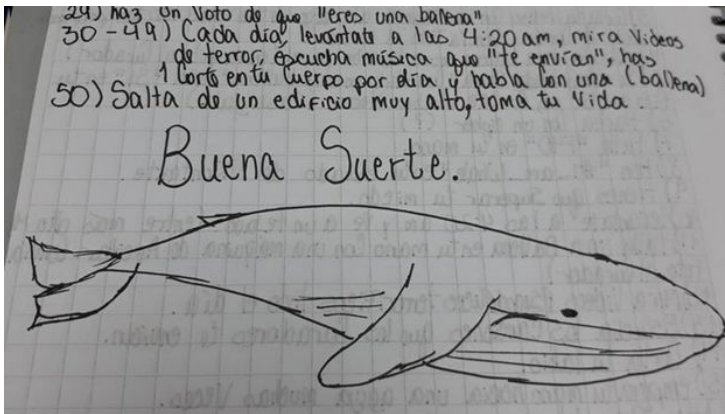 29) haz un voto de que "eres una ballena"
30 - 49) Cada día, levántate a las 4:20 am, mira videos
de terror, escucha música que "te envían", has
1 corte en tu cuerpo por día y habla con una (ballena)
50) Salta de un edificio muy alto, toma tu vida.
Buena Suerte.